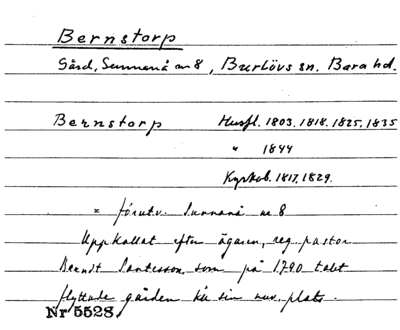 Bernstorp
Gård, Sunnanå nr 8, Burlövs sn. Bara hd.
Bernstorp Husfl. 1803. 1818. 1825. 1835
" 1844
Kyrkob. 1817. 1829.
= förutv. Sunnanå nr 8
Uppkallat efter ägaren, reg. pastor
Berndt Santesson, som på 1790 talet
flyttade gården till sin nuv. plats.
Nr 5528